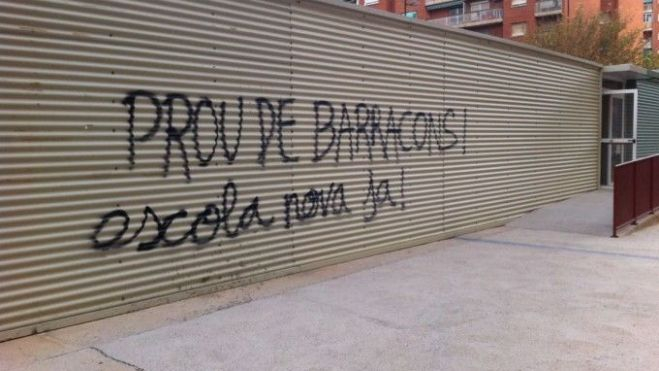 PROU DE BARRACONS!
escola nova ja!